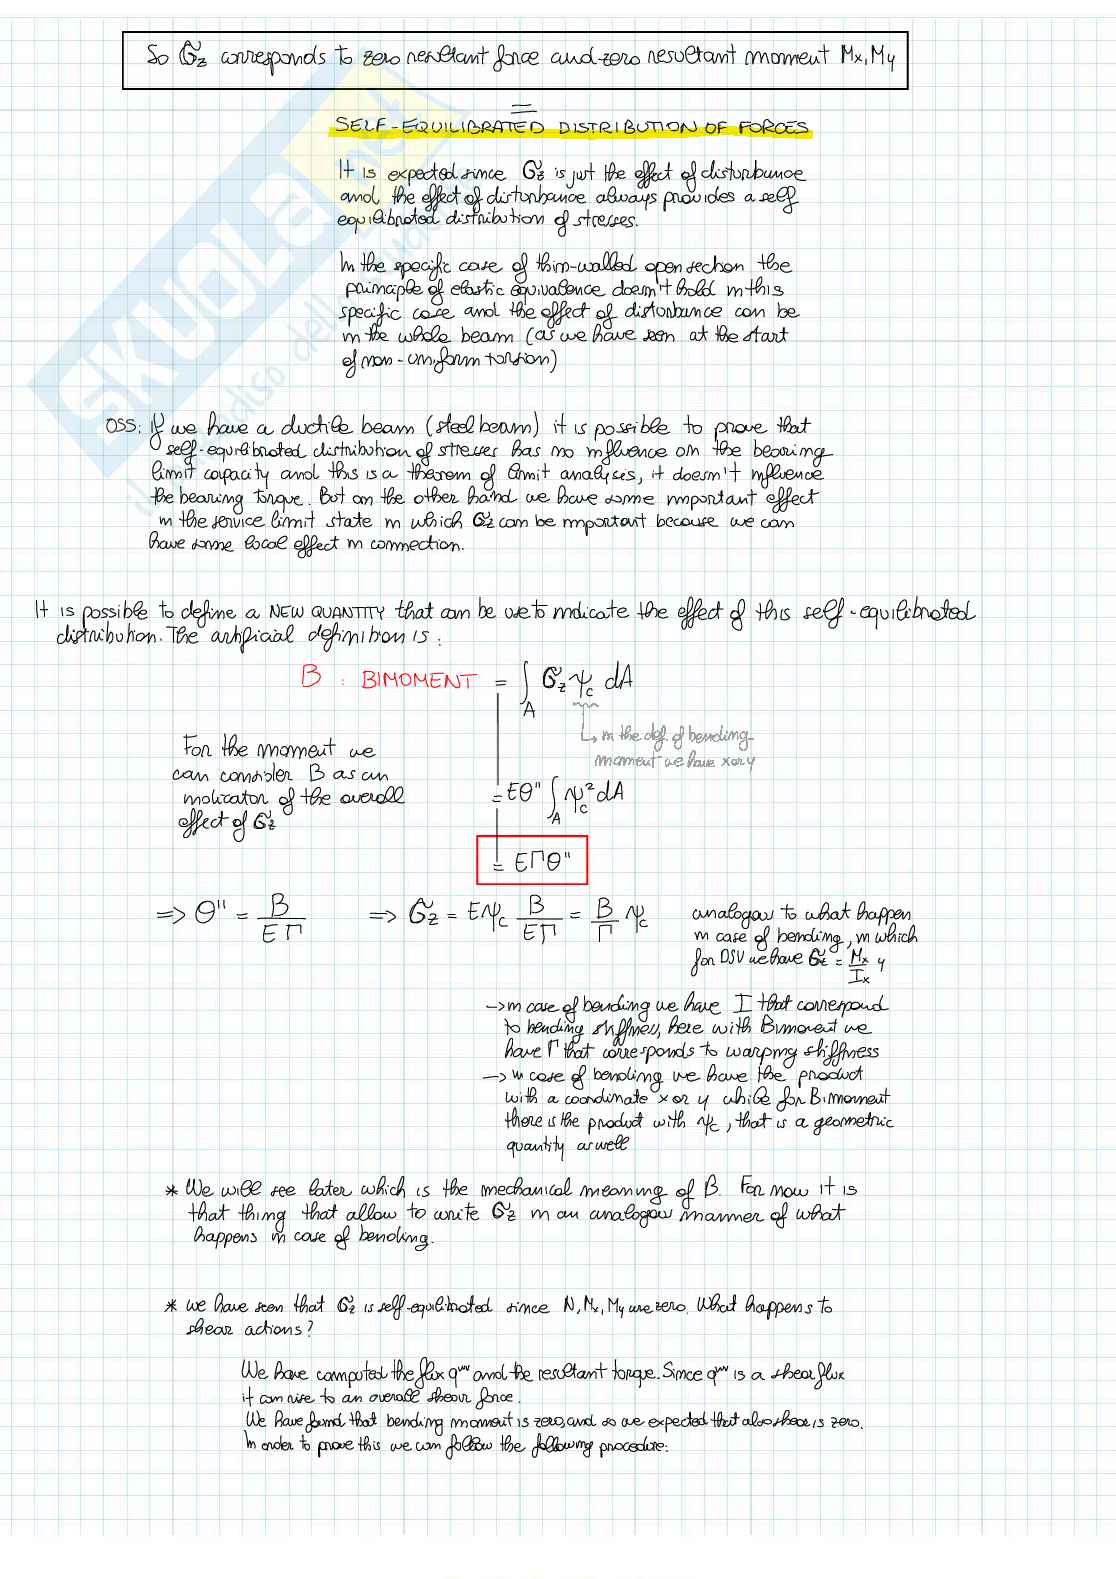 So σ̃z corresponds to zero resultant force and zero resultant moment Mx, My
=
SELF-EQUILIBRATED DISTRIBUTION OF FORCES
It is expected since σ̃z is just the effect of disturbance
and the effect of disturbance always provides a self
equilibrated distribution of stresses.
In the specific case of thin-walled open section the
principle of elastic equivalence doesn't hold in this
specific case and the effect of disturbance can be
in the whole beam (as we have seen at the start
of non-uniform torsion)
OSS: If we have a ductile beam (steel beam) it is possible to prove that
self-equilibrated distribution of stresses has no influence on the bearing
limit capacity and this is a theorem of limit analysis, it doesn't influence
the bearing torque. But on the other hand we have some important effect
in the service limit state in which σ̃z can be important because we can
have some local effect in connection.
It is possible to define a NEW QUANTITY that can be use to indicate the effect of this self-equilibrated
distribution. The artificial definition is:
B : BIMOMENT = ∫A σ̃z ψc dA
↳ in the def. of bending
moment we have x or y
For the moment we
can consider B as an
indicator of the overall
effect of σ̃z
= Eθ" ∫A ψc² dA
= EΓθ"
=> θ" = B/EΓ => σ̃z = Eψc B/EΓ = B/Γ ψc
analogous to what happen
in case of bending, in which
for DSV we have σz = Mx/Ix y
→ in case of bending we have I that correspond
to bending stiffness, here with Bimoment we
have Γ that corresponds to warping stiffness
→ in case of bending we have the product
with a coordinate x or y while for Bimoment
there is the product with ψc, that is a geometric
quantity as well
* We will see later which is the mechanical meaning of B. For now it is
that thing that allow to write σ̃z in an analogous manner of what
happens in case of bending.
* We have seen that σ̃z is self-equilibrated since N, Mx, My are zero. What happens to
shear actions?
We have computed the flux q''' and the resultant torque. Since q''' is a shear flux
it can rise to an overall shear force.
We have found that bending moment is zero, and so we expected that also shear is zero.
In order to prove this we can follow the following procedure: